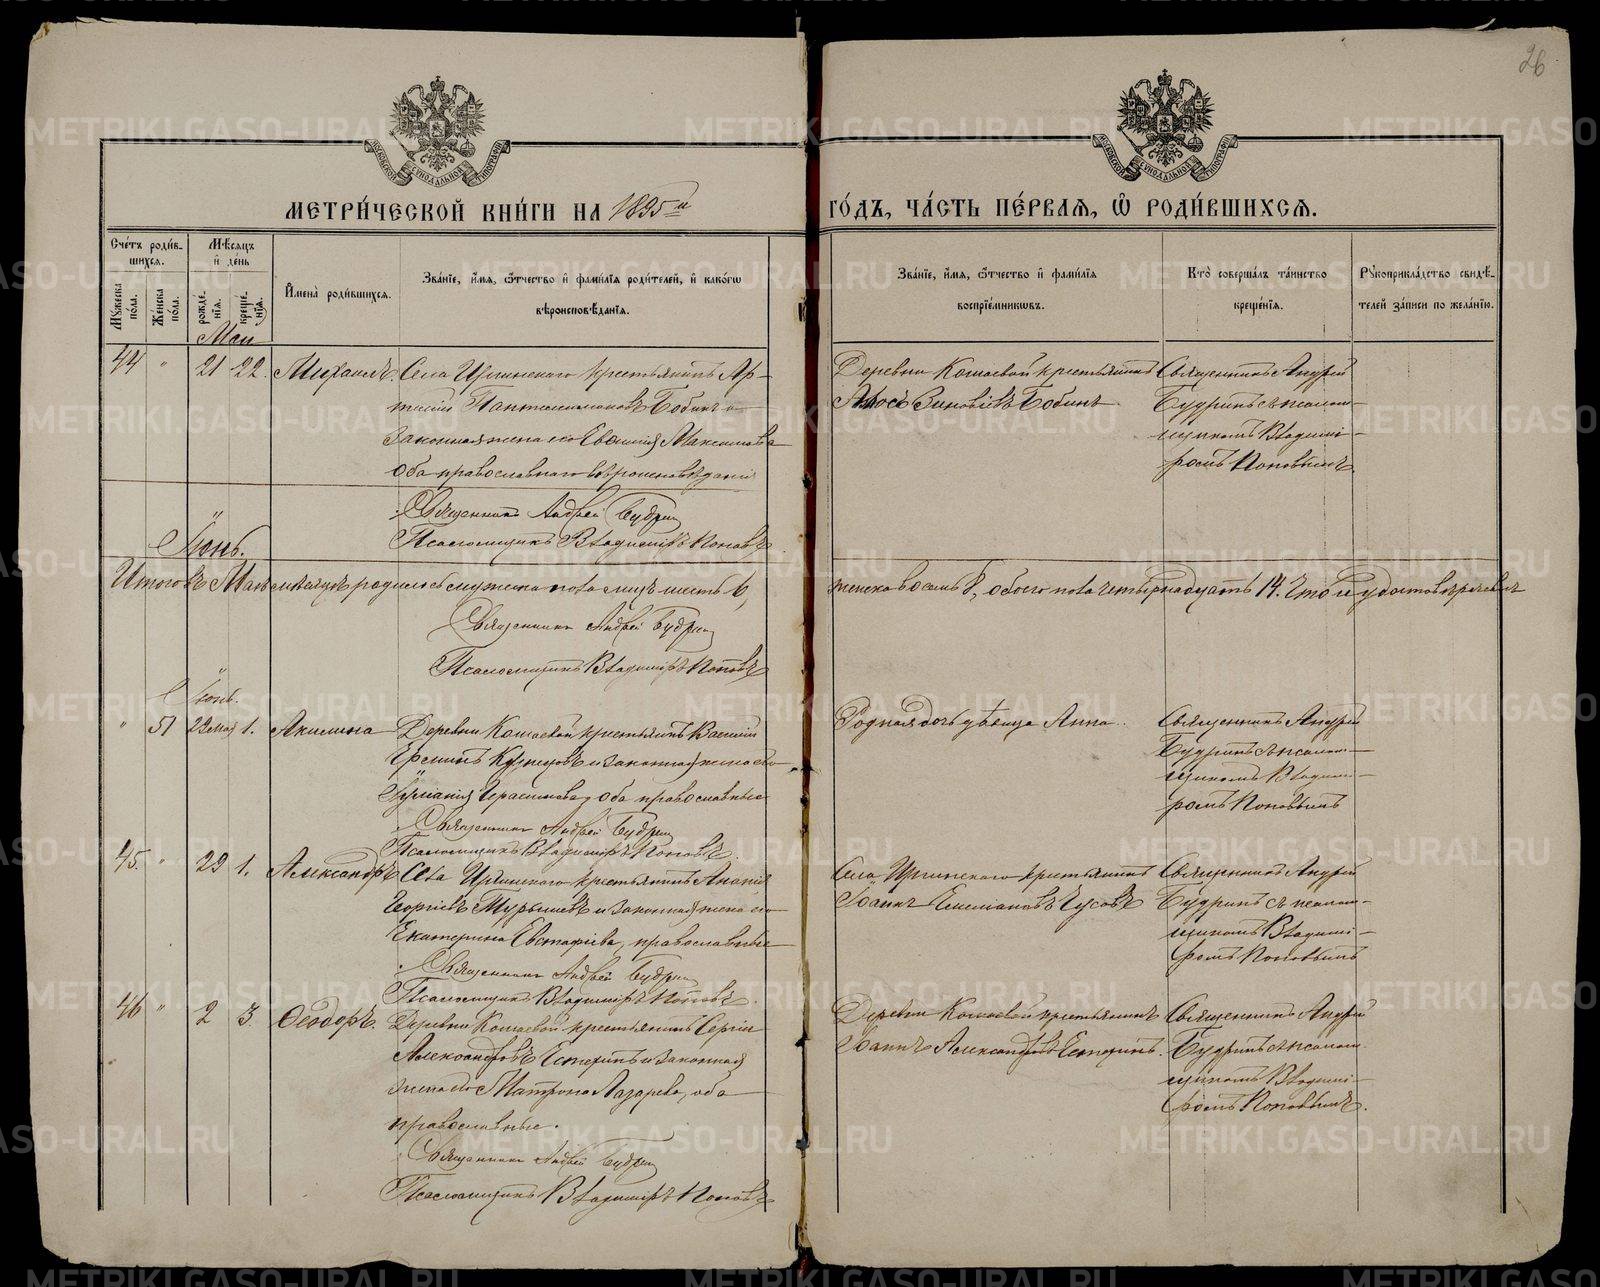 26
МОСКОВСКОЙ СУНОДАЛЬНОЙ ТИПОГРАФІИ
МОСКОВСКОЙ СУНОДАЛЬНОЙ ТИПОГРАФІИ
МЕТРИ́ЧЕСКОЙ КНИ́ГИ НА 1895 й ГО́ДЪ, ЧА́СТЬ ПЕ́РВАЯ, Ѡ҆ РОДИ́ВШИХСЯ.
Сче́тъ роди́в-
шихся.
Мꙋ́жеска по́ла.
Же́нска по́ла.
Мѣ́сяцъ и҆ де́нь
рожде́-
нїя.
креще́-
нїя.
И҆мена̀ роди́вшихся.
Зва́нїе, и҆́мя, ѻ҆́тчество и҆ фами́лїя роди́телей, и҆ како́гѡ
вѣроисповѣ́данїя.
Зва́нїе, и҆́мя, ѻ҆́тчество и҆ фами́лїя
воспрїе́мниковъ.
Кто̀ соверша́лъ та́инство
креще́нїя.
Рꙋкоприкла́дство свидѣ́-
телей за́писи по жела́нїю.
Маи
44 " 21 22. Михаилъ. Села Иргинскаго крестьянинъ Ар-
темій Пантелеимоновъ Бобинъ и
законная жена его Евѳимія Максимова
оба православнаго вѣроисповѣданія
Священникъ Андрей Будрин
Псаломщикъ Владиміръ Поповъ
Деревни Кошаевой крестьянинъ
Зиновіевъ Бобинъ
Священникъ Андрей
Будринъ съ псалом-
щикомъ Владимі-
ромъ Поповымъ
Іюнь.
Итого въ Маѣ мѣсяцѣ родилось мужска пола лицъ шесть 6, женска восемь 8, обоего пола четырнадцать 14. Что и удостовѣряемъ
Священникъ Андрей Будрин
Псаломщикъ Владиміръ Поповъ
Іюнь.
" 51 29 мая 1. Акилина Деревни Кошаевой крестьянинъ Василій
Кузнецовъ и законная жена его
Іуліанія Герасимова, оба православные
Священникъ Андрей Будрин
Псаломщикъ Владиміръ Поповъ.
Родная дочь дѣвица Анна.
Священникъ Андрей
Будринъ съ псалом-
щикомъ Владимі-
ромъ Поповымъ
45. " 29 1. Александръ Села Иргинскаго крестьянинъ Ананій
Георгіевъ Мурышевъ и законная жена его
Екатерина Евстафіева, православные
Священникъ Андрей Будрин
Псаломщикъ Владиміръ Поповъ.
Села Иргинскаго крестьянинъ
Іоаннъ Емеліановъ Чусовъ
Священникъ Андрей
Будринъ съ псалом-
щикомъ Владимі-
ромъ Поповымъ
46 " 2 3. Ѳеодоръ. Деревни Кошаевой крестьянинъ Сергій
Александровъ Естеринъ и законная
жена его Матрона Лазарева, оба
православные.
Священникъ Андрей Будрин
Псаломщикъ Владиміръ Поповъ
Деревни Кошаевой крестьянинъ
Іоаннъ Александровъ Естеринъ.
Священникъ Андрей
Будринъ съ псалом-
щикомъ Владимі-
ромъ Поповымъ.
METRIKI.GASO-URAL.RU